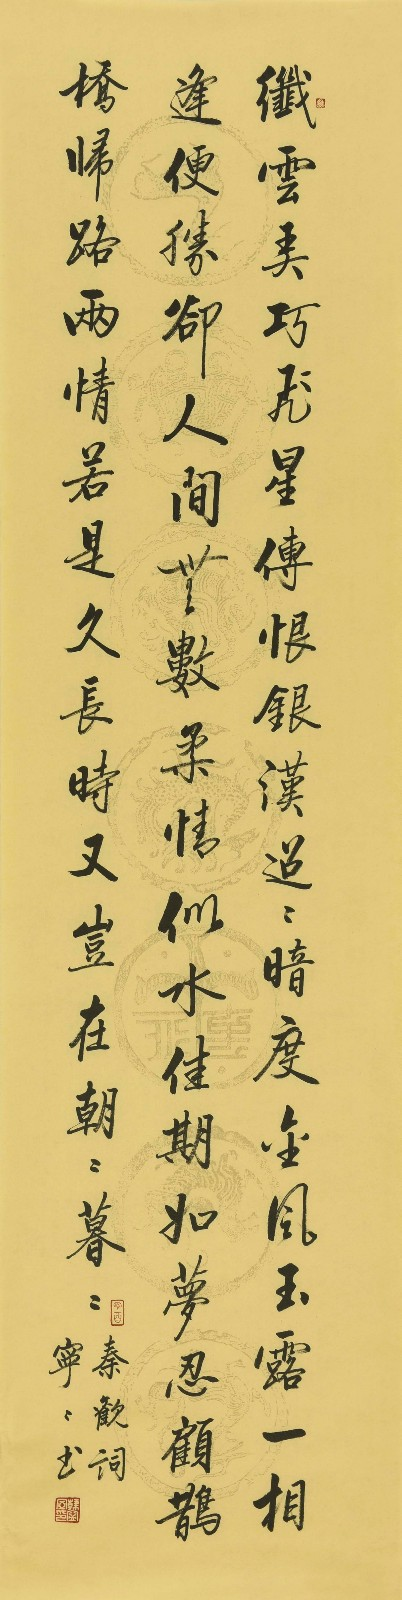 纖雲弄巧飛星傳恨銀漢迢〻暗度金風玉露一相
逢便勝卻人間無數柔情似水佳期如夢忍顧鵲
橋歸路兩情若是久長時又豈在朝〻暮〻
秦觀詞
寧〻書